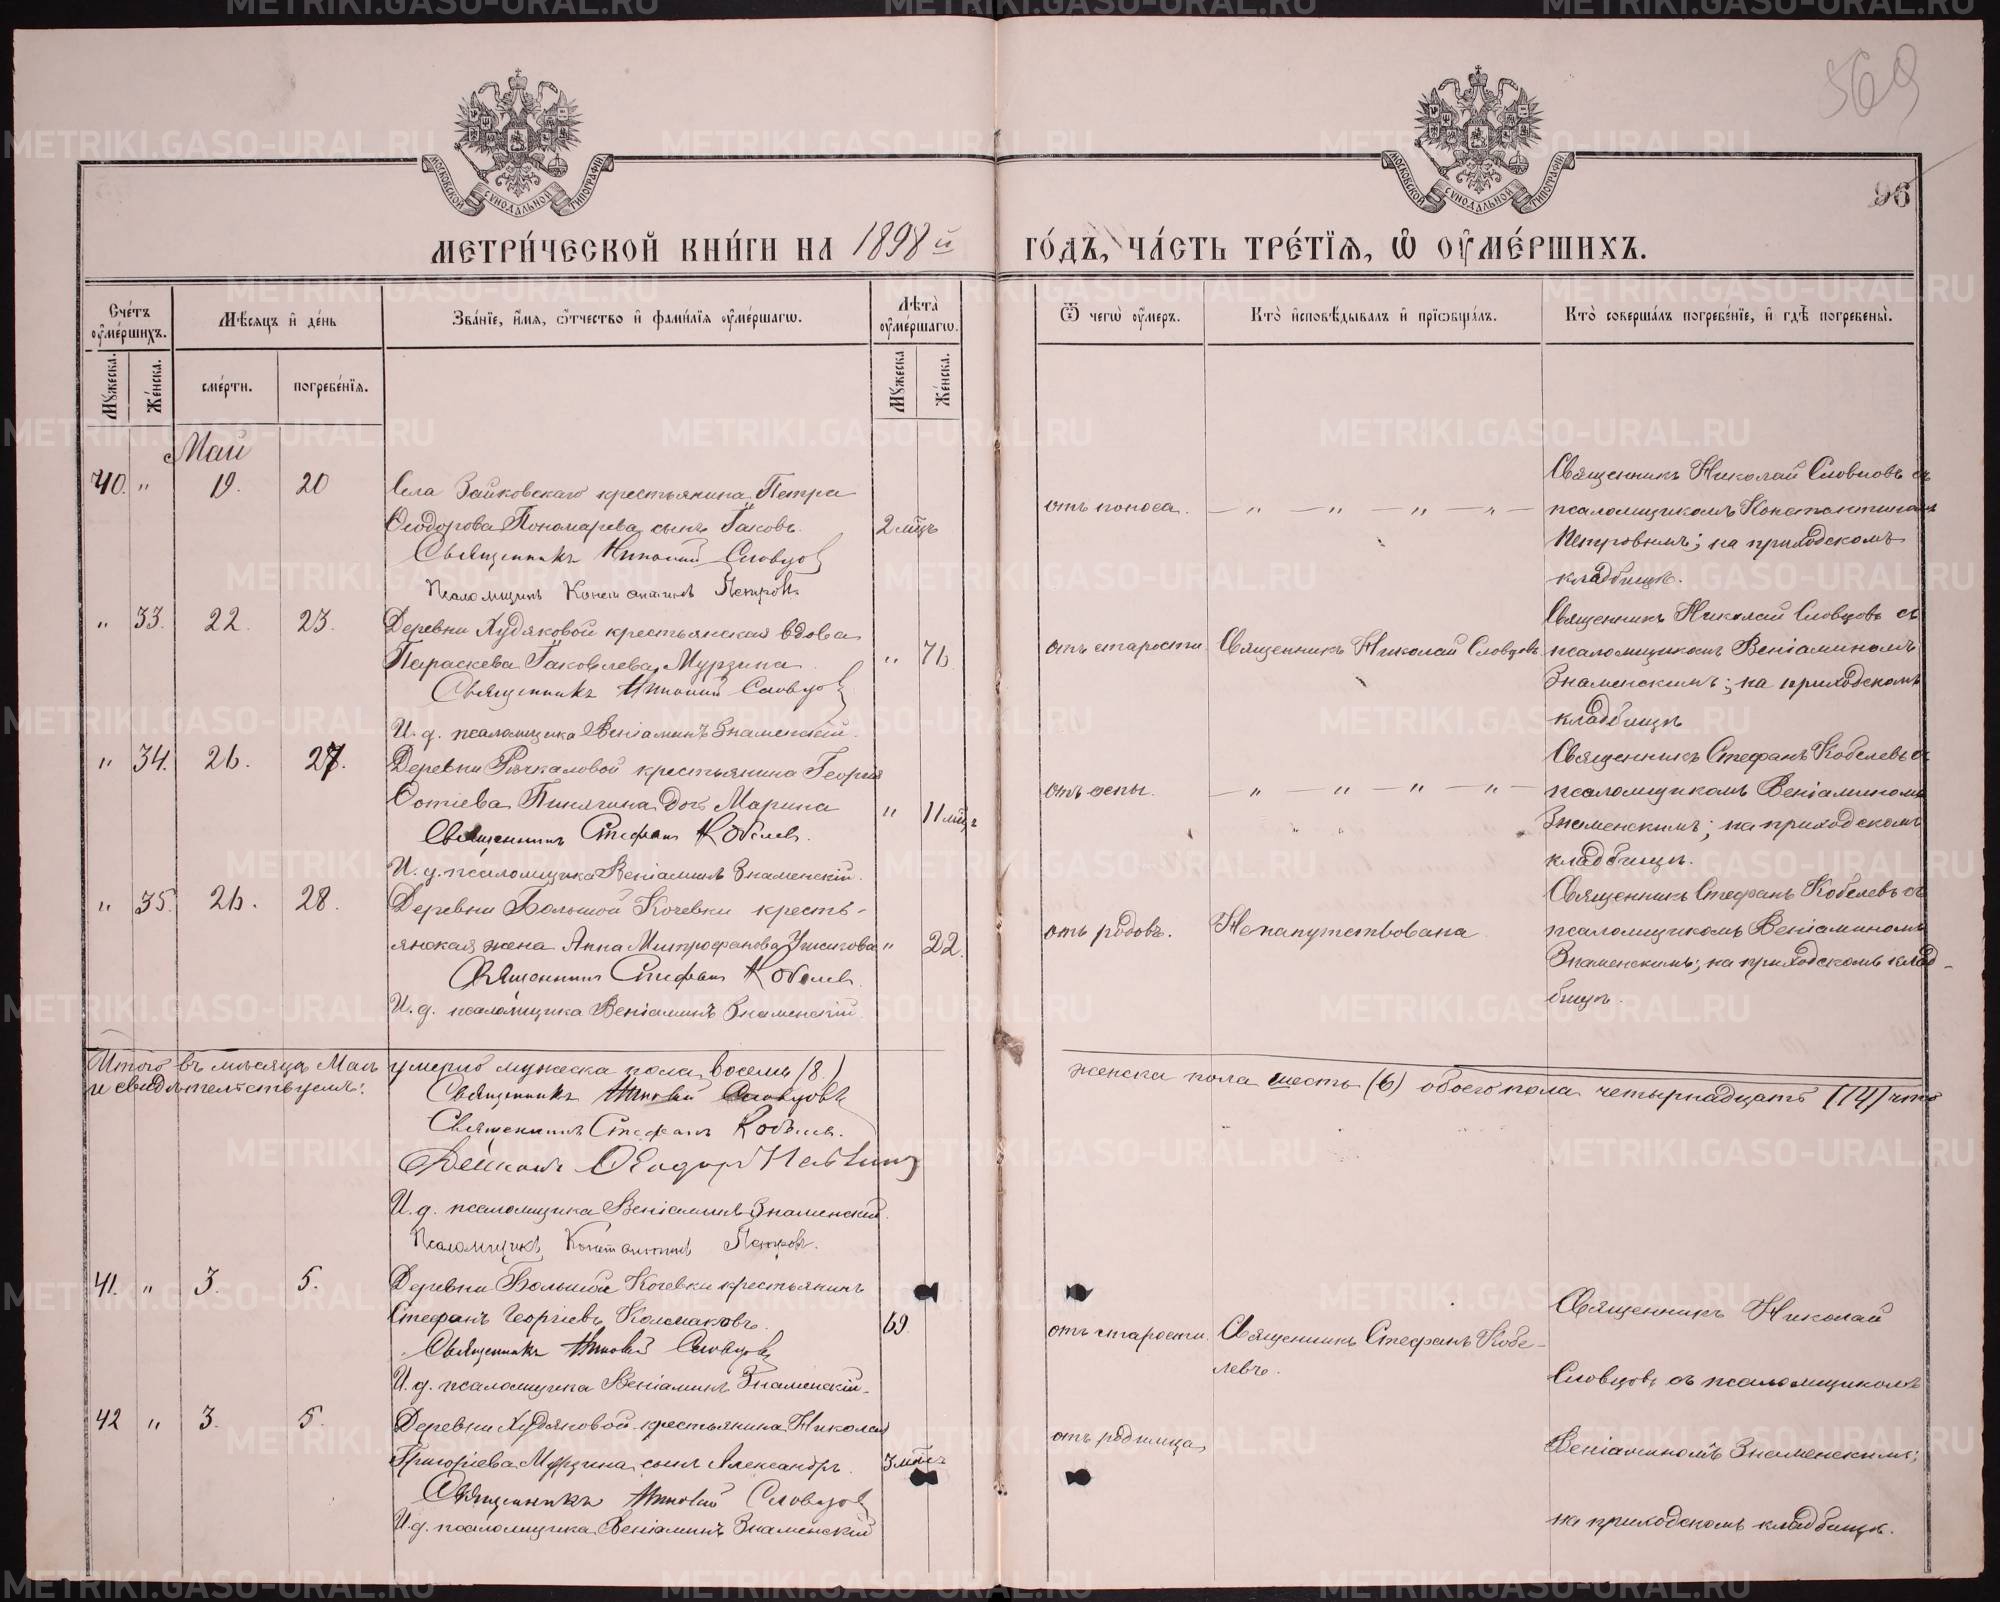 569
96
МОСКОВСКОЙ СѴНОДАЛЬНОЙ ТИПОГРАФІИ
МОСКОВСКОЙ СѴНОДАЛЬНОЙ ТИПОГРАФІИ
МЕТРИ́ЧЕСКОЙ КНИ́ГИ НА 1898й ГО́ДЪ, ЧА́СТЬ ТРЕ́ТІЯ, Ѡ ОУМЕ́РШИХЪ.
Сче́тъ оуме́ршихъ.
Мꙋжеска.
Же́нска.
Мѣсяцъ и де́нь
сме́рти.
погребе́нїя.
Зва́нїе, и́мя, о́тчество и фами́лїя оуме́ршагѡ.
Лѣта̀ оуме́ршагѡ.
Мꙋжеска
Же́нска.
Ѿ чегѡ̀ оу́меръ.
Кто̀ исповѣ́дывалъ и прїѻбща́лъ.
Кто̀ соверша́лъ погребе́нїе, и гдѣ̀ погребены̀.
Май
40. " 19. 20 Села Зайковскаго крестьянина Петра
Ѳеодорова Пономарева сынъ Іаковъ. 2 мѣц.
Священникъ Николай Словцовъ
Псаломщикъ Константинъ Петровъ.
отъ поноса. — " — " — " —
Священникъ Николай Словцовъ съ
псаломщикомъ Константиномъ
Петровымъ; на приходскомъ
кладбищѣ.
" 33. 22. 23. Деревни Худяковой крестьянская вдова
Параскева Іаковлева Мурзина. " 76
Священникъ Николай Словцовъ
И. д. псаломщика Веніаминъ Знаменскій.
отъ старости Священникъ Николай Словцовъ
Священникъ Николай Словцовъ съ
псаломщикомъ Веніаминомъ
Знаменскимъ; на приходскомъ
кладбищѣ
" 34. 26. 27. Деревни Речкаловой крестьянина Георгія
Пинягина дочь Марина " 11 мѣц.
Священникъ Стефанъ Кобелев.
И. д. псаломщика Веніаминъ Знаменскій.
отъ оспы. — " — " — " — " —
Священникъ Стефанъ Кобелевъ съ
псаломщикомъ Веніаминомъ
Знаменскимъ; на приходскомъ
кладбищѣ.
" 35. 26. 28. Деревни Большой Кочевки кресть-
янская жена Анна Митрофанова Ушакова " 22.
Священникъ Стефанъ Кобелев.
И. д. псаломщика Веніаминъ Знаменскій
отъ родовъ. Ненапутствована
Священникъ Стефанъ Кобелевъ съ
псаломщикомъ Веніаминомъ
Знаменскимъ; на приходскомъ клад-
бищѣ.
Итого въ мѣсяцѣ Маѣ умерло мужеска пола восемь (8) женска пола шесть (6) обоего пола четырнадцать (14) что
и свидѣтельствуемъ:
Священникъ Николай Словцовъ
Священникъ Стефанъ Кобелев.
Діаконъ Ѳеодоръ
И. д. псаломщика Веніаминъ Знаменскій.
Псаломщикъ Константинъ Петровъ.
41. " 3. 5. Деревни Большой Кочевки крестьянинъ
Стефанъ Георгіевъ Колмаковъ. 69.
Священникъ Николай Словцовъ
И. д. псаломщика Веніаминъ Знаменскій.
отъ старости. Священникъ Стефанъ Кобе-
левъ.
42 " 3. 5. Деревни Худяковой крестьянина Николая
Григоріева Мурзина сынъ Александръ. 3 мѣс.
Священникъ Николай Словцовъ
И. д. псаломщика Веніаминъ Знаменскій
отъ родимца
Священникъ Николай
Словцовъ съ псаломщикомъ
Веніаминомъ Знаменскимъ;
на приходскомъ кладбищѣ.
METRIKI.GASO-URAL.RU